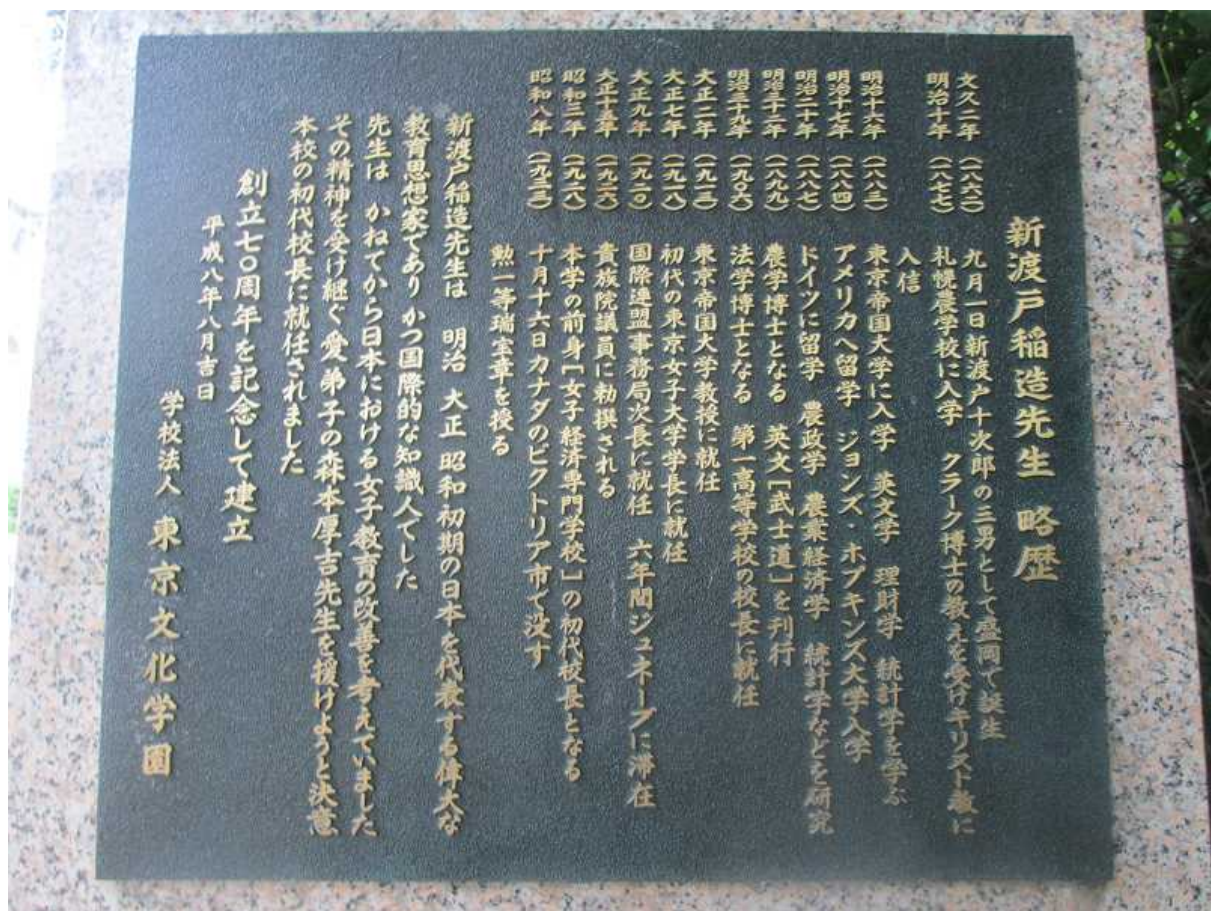 新渡戸稲造先生 略歴
文久二年(一八六二) 九月一日新渡戸十次郎の三男として盛岡で誕生
明治十年(一八七七) 札幌農学校に入学 クラーク博士の教えを受けキリスト教に
入信
明治十六年(一八八三) 東京帝国大学に入学 英文学 理財学 統計学を学ぶ
明治十七年(一八八四) アメリカへ留学 ジョンズ・ホプキンズ大学入学
明治二十年(一八八七) ドイツに留学 農政学 農業経済学 統計学などを研究
明治三十二年(一八九九) 農学博士となる 英文「武士道」を刊行
明治三十九年(一九〇六) 法学博士となる 第一高等学校の校長に就任
大正二年(一九一三) 東京帝国大学教授に就任
大正七年(一九一八) 初代の東京女子大学学長に就任
大正九年(一九二〇) 国際連盟事務局次長に就任 六年間ジュネーブに滞在
大正十五年(一九二六) 貴族院議員に勅撰される
昭和三年(一九二八) 本学の前身「女子経済専門学校」の初代校長となる
昭和八年(一九三三) 十月十六日カナダのビクトリア市で没す
勲一等瑞宝章を授る
新渡戸稲造先生は 明治 大正 昭和初期の日本を代表する偉大な
教育思想家でありかつ国際的な知識人でした
先生は かねてから日本における女子教育の改善を考えていました
その精神を受け継ぐ愛弟子の森本厚吉先生を援けようと決意
本校の初代校長に就任されました
創立七〇周年を記念して建立
平成八年八月吉日
学校法人 東京文化学園